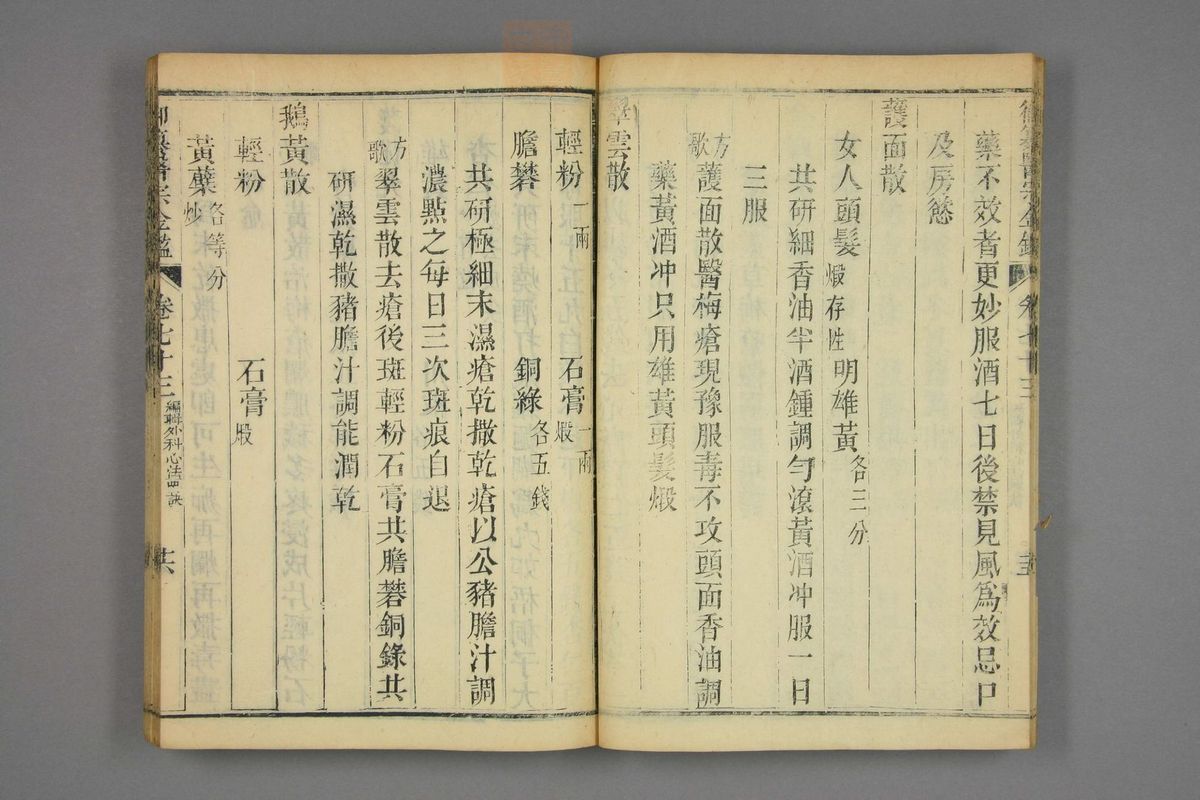 藥不效者更妙服酒七日後禁見風爲效忌口
及房慾
護面散
女人頭髮煅存性 明雄黃各三分
共研細香油半酒鍾調勻滾黃酒冲服一日
三服
方歌 護面散醫梅瘡現豫服毒不攻頭面香油調
藥黃酒冲只用雄黃頭髮煅
翠雲散
輕粉一兩 石膏煅一兩
膽礬 銅綠各五錢
共研極細末濕瘡乾撒乾瘡以公豬膽汁調
濃點之每日三次斑痕自退
方歌 翠雲散去瘡後斑輕粉石膏共膽礬銅綠共
研濕乾撒豬膽汁調能潤乾
鵝黃散
輕粉 石膏煅
黃蘗炒各等分
御纂醫宗金鑑 卷七十三 編輯外科心法要訣 十六